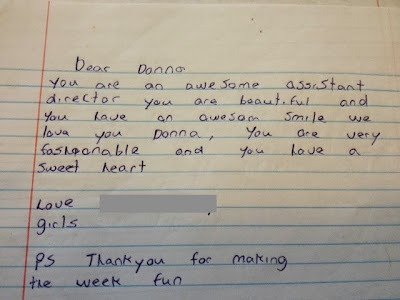 Dear Donna
you are an awesome assistant
director you are beautiful and
you have an awesom smile we
love you Donna, You are very
fashoonable and you have a
sweet heart
Love
girls
PS Thankyou for making
the week fun